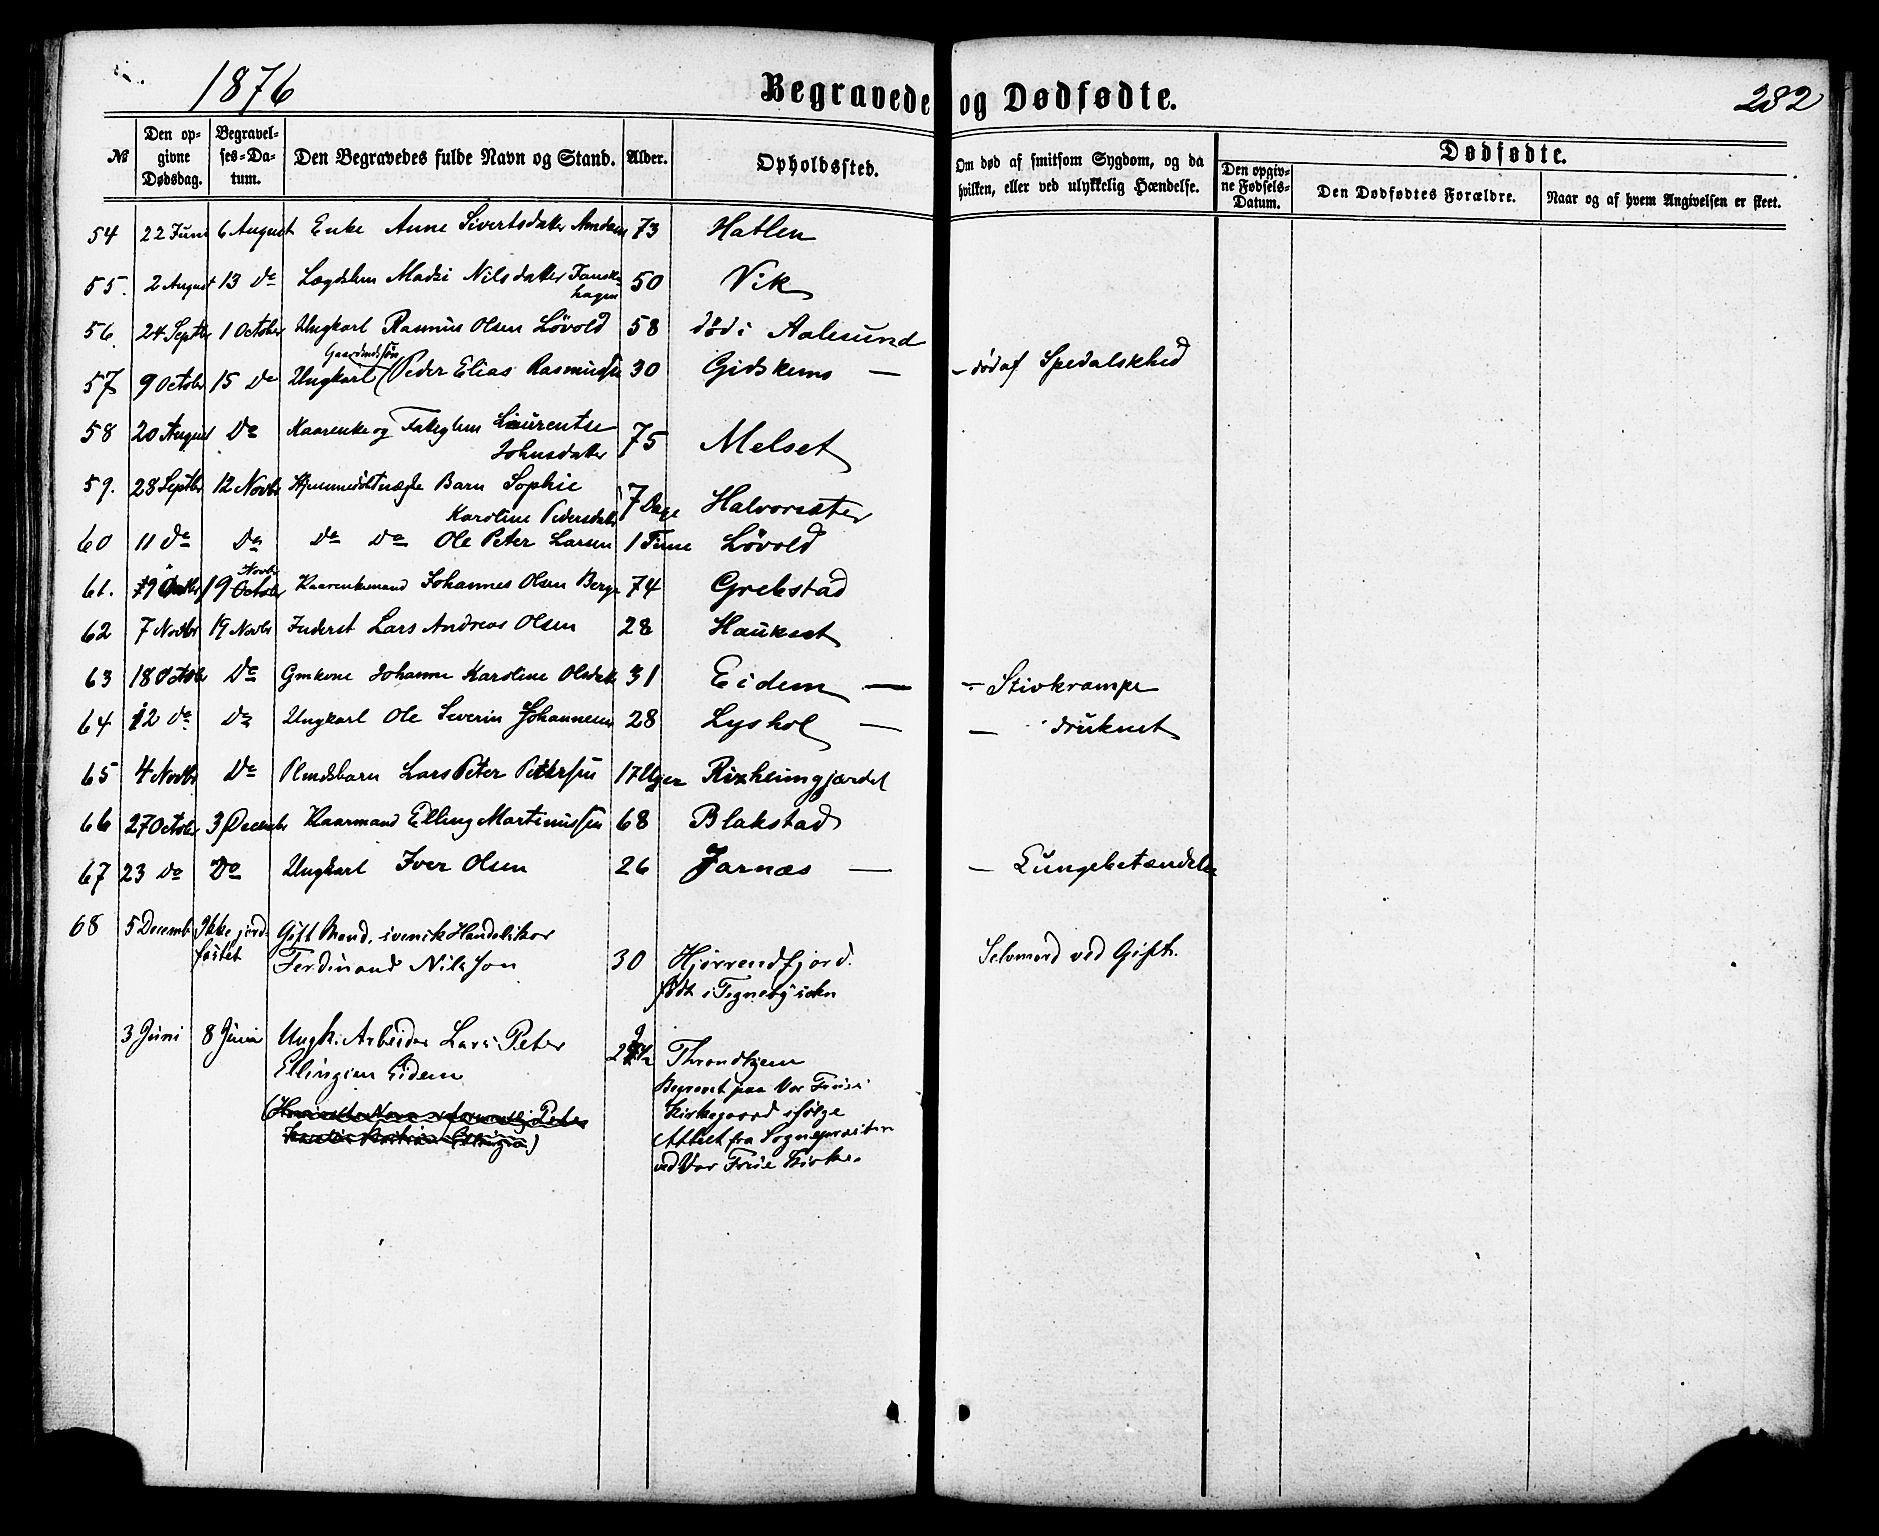 1876 Begravede og Dødfødte. 282
№ Den opgivne Dødsdag. Begravelses-Datum. Den Begravedes fulde Navn og Stand. Alder. Opholdssted. Om død af smitsom Sygdom, og da hvilken, eller ved ulykkelig Hændelse. Dødfødte.
Den opgivne Fødsels-Datum. Den Dødfødtes Forældre. Naar og af hvem Angivelsen er skeet.
54 22 Juni 6 August Enke Anne Sivertsdatter 73 Hatlen
55. 2 August 13 Do Lægdslem Madsi Nilsdatter 50 Vik
hagen
56. 24 Septbr 1 October Ungkarl Rasmus Olsen Løvold 58 død i Aalesund
57 9 Octobr 15 Do Ungkarl (Peder Elias Rasmussen 30 Gidskemo — - død af Spedalskhed
58 20 August Do Kaarenke og Laurentse
Johnsdatter 75 Melset
59. 28 Septbr 12 Novbr Hjemmedøbt Barn Sophie
Karoline Pedersdatter 7 Dage Halvorsæter
60 11 Do Do Do Do Ole Peter Larsen 1 Time Løvold
Novbr
61. 19 October Kaarenkemand Johannes Olsen Berge 74 Grebstad
62 7 Novbr 19 Novbr Inderst Lars Andreas Olsen 28 Haukset
63 18 Octobr Do Gmkone Johanne Karoline Olsdatter 31 Eidem — - Stivkrampe
64 12 do Do Ungkarl Ole Severin Johannesen 28 Lyshol — — druknet
65 4 Novbr Do Plmdsbarn Lars Peter Petersen 17 Uger Rixheimgjærdet
66 27 Octobr 3 Decembr Kaarmand Elling Martinussen 68 Blakstad
67 23 do Do Ungkarl Iver Olsen 26 Jarnæs — — Lungebetændelse
68 5 Decembr Ikke jord- Gift Mand, svensk Handelskar
fæstet Ferdinand Nilsson 30 Hjørrendfjord. Selvmord ved Gift.
født i Tegneby
3 Juni 8 Juni Ungk. Arbeider Lars Peter
Ellingsen Eidem Throndhjem
Begravet paa Vor Frues
Kirkegaard ifølge
Attest fra Sognepræsten
ved Vor Frue Kirke.